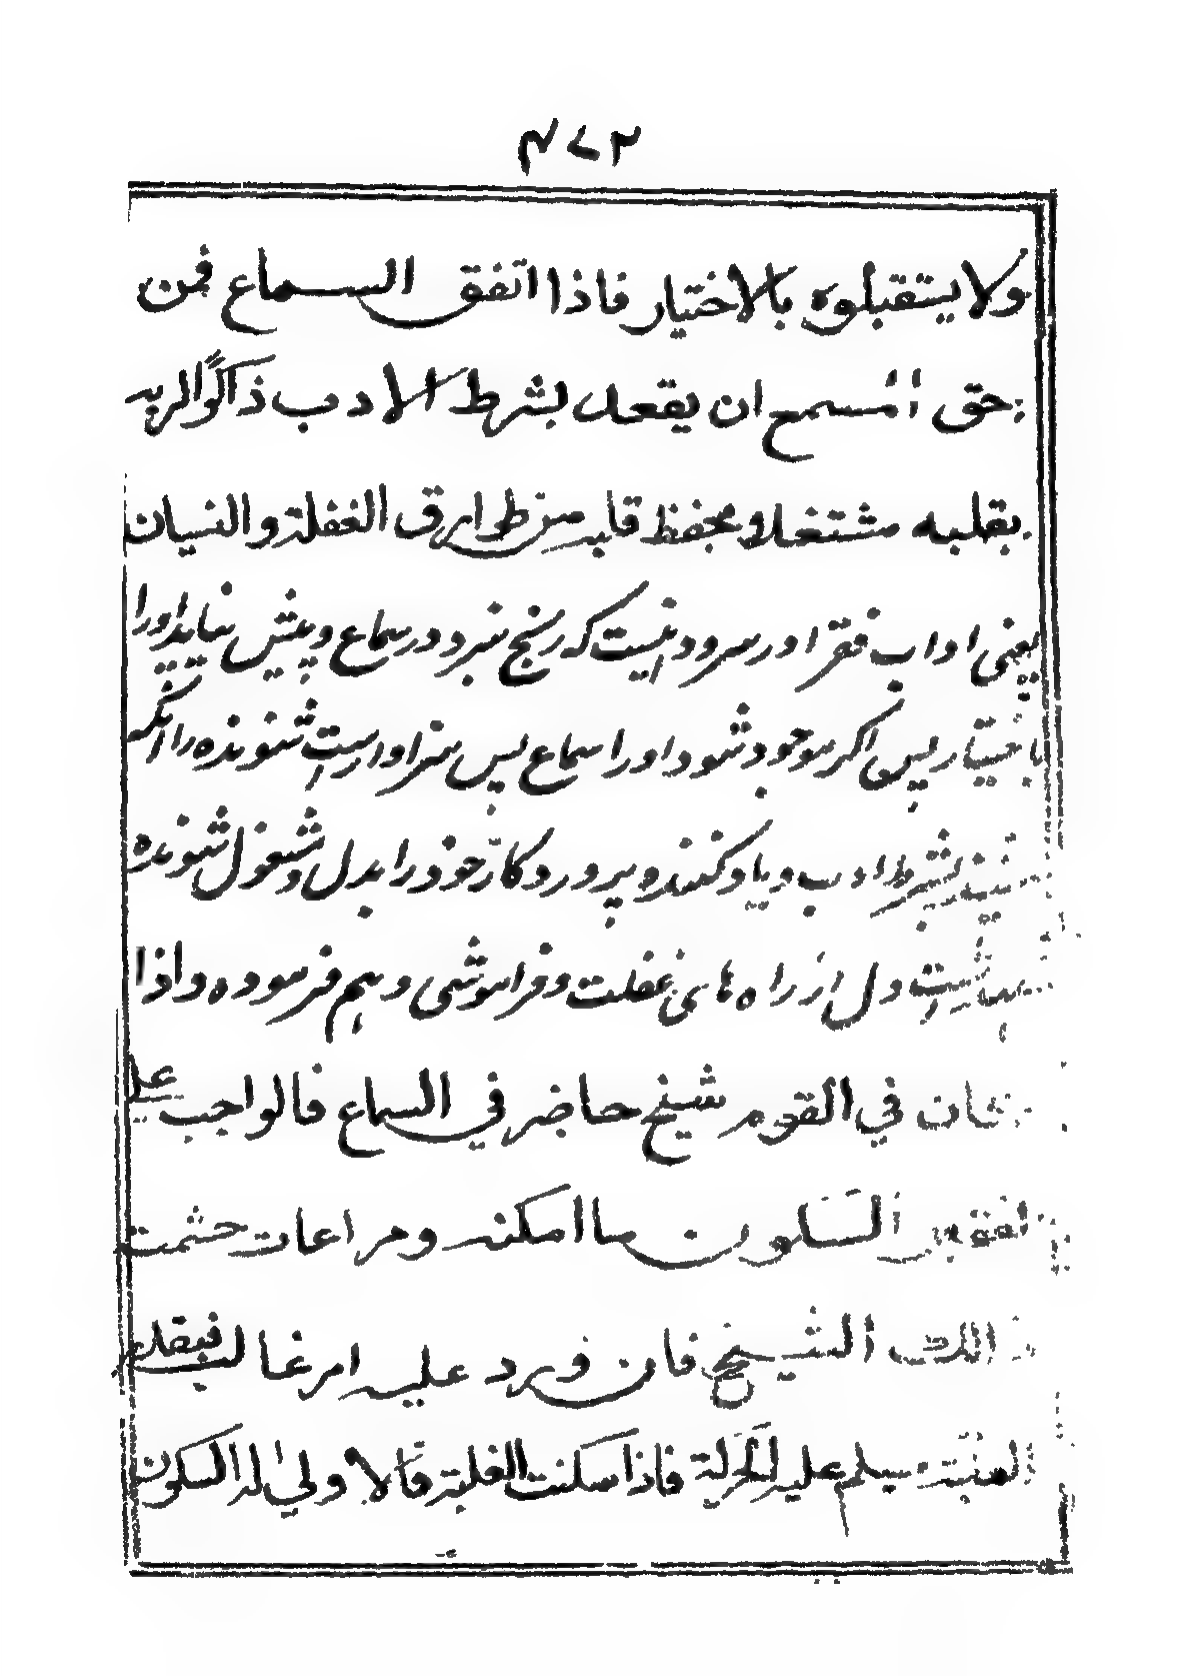 ٢٧٢
ولا يستقبلوه بالاختيار فاذا اتفق السماع فمن
حق المستمع ان يقعد بشرط الادب ذاكرًا لربه
بقلبه مشتغلا بحفظ قلبه من طوارق الغفلة والنسيان
يعنی اداب فقرا در سرود اینست که رنج نبرد در سماع و پیش نیاید اورا
باختیار پس اکر موجود شود اورا سماع پس سزاوارست شنونده را انکه
بشیند بشرط ادب و یاد کننده پروردکار خود را بدل و مشغول شونده
دل از راه های غفلت و فراموشی و هم فرموده واذا
كان في القوم شيخ حاضر في السماع فالواجب على
الفقير السكون ما امكنه ومراعات حشمت
ذالك الشيخ فان ورد عليه امر غالب فبقدر
الغلبة يسلم عليه الحركة فاذا سكنت الغلبة فالاولى له السكون